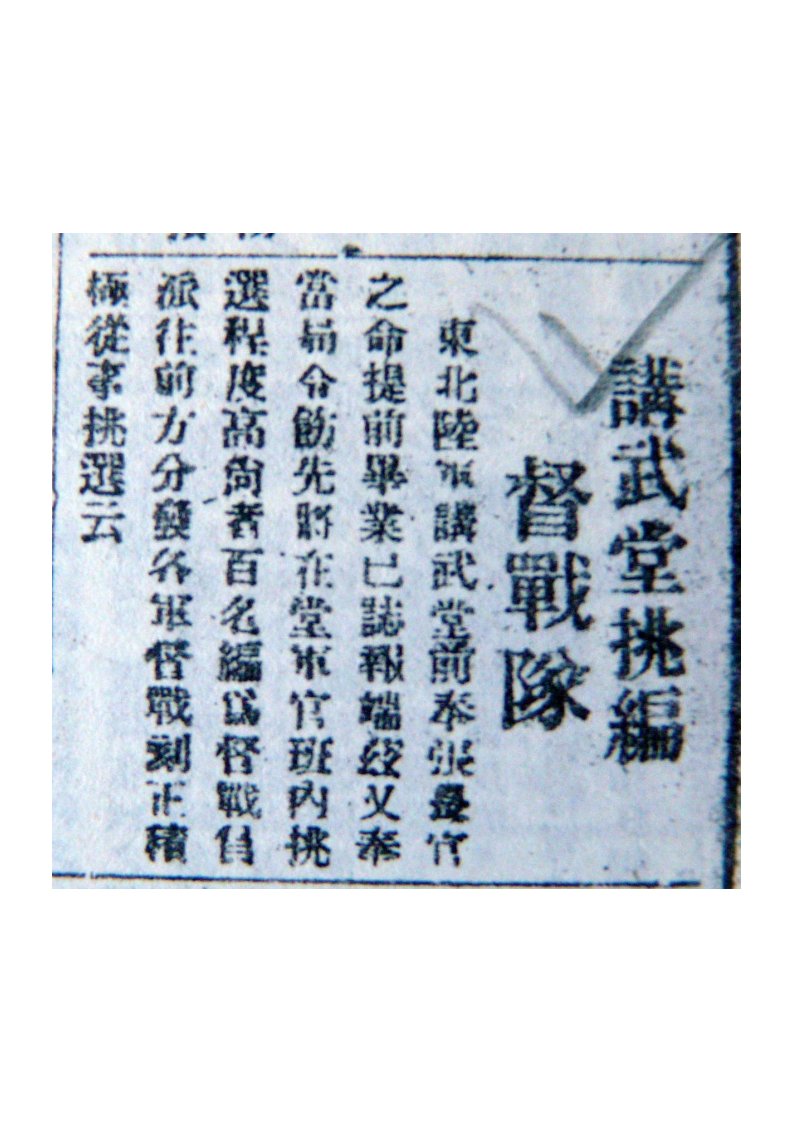 講武堂挑編
督戰隊
東北陸軍講武堂前奉張疊官
之命提前畢業已誌報端茲又奉
當局令飭先將在堂軍官班內挑
選程度高尚者百名編爲督戰員
派往前方分發各軍督戰刻正積
極從事挑選云